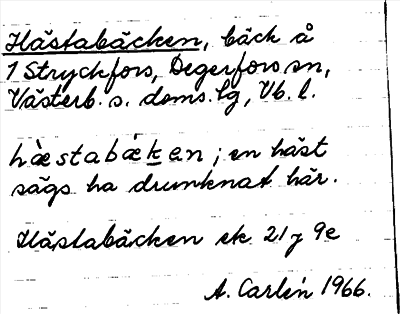 Hästabäcken, bäck å
1 Stryckfors, Degerfors sn,
Västerb. s. doms. lg, Vb. l.
hæ̀stabæ̀ḵen; en häst
sägs ha drunknat här.
Hästabäcken ek. 21 7 9e
A. Carlén 1966.